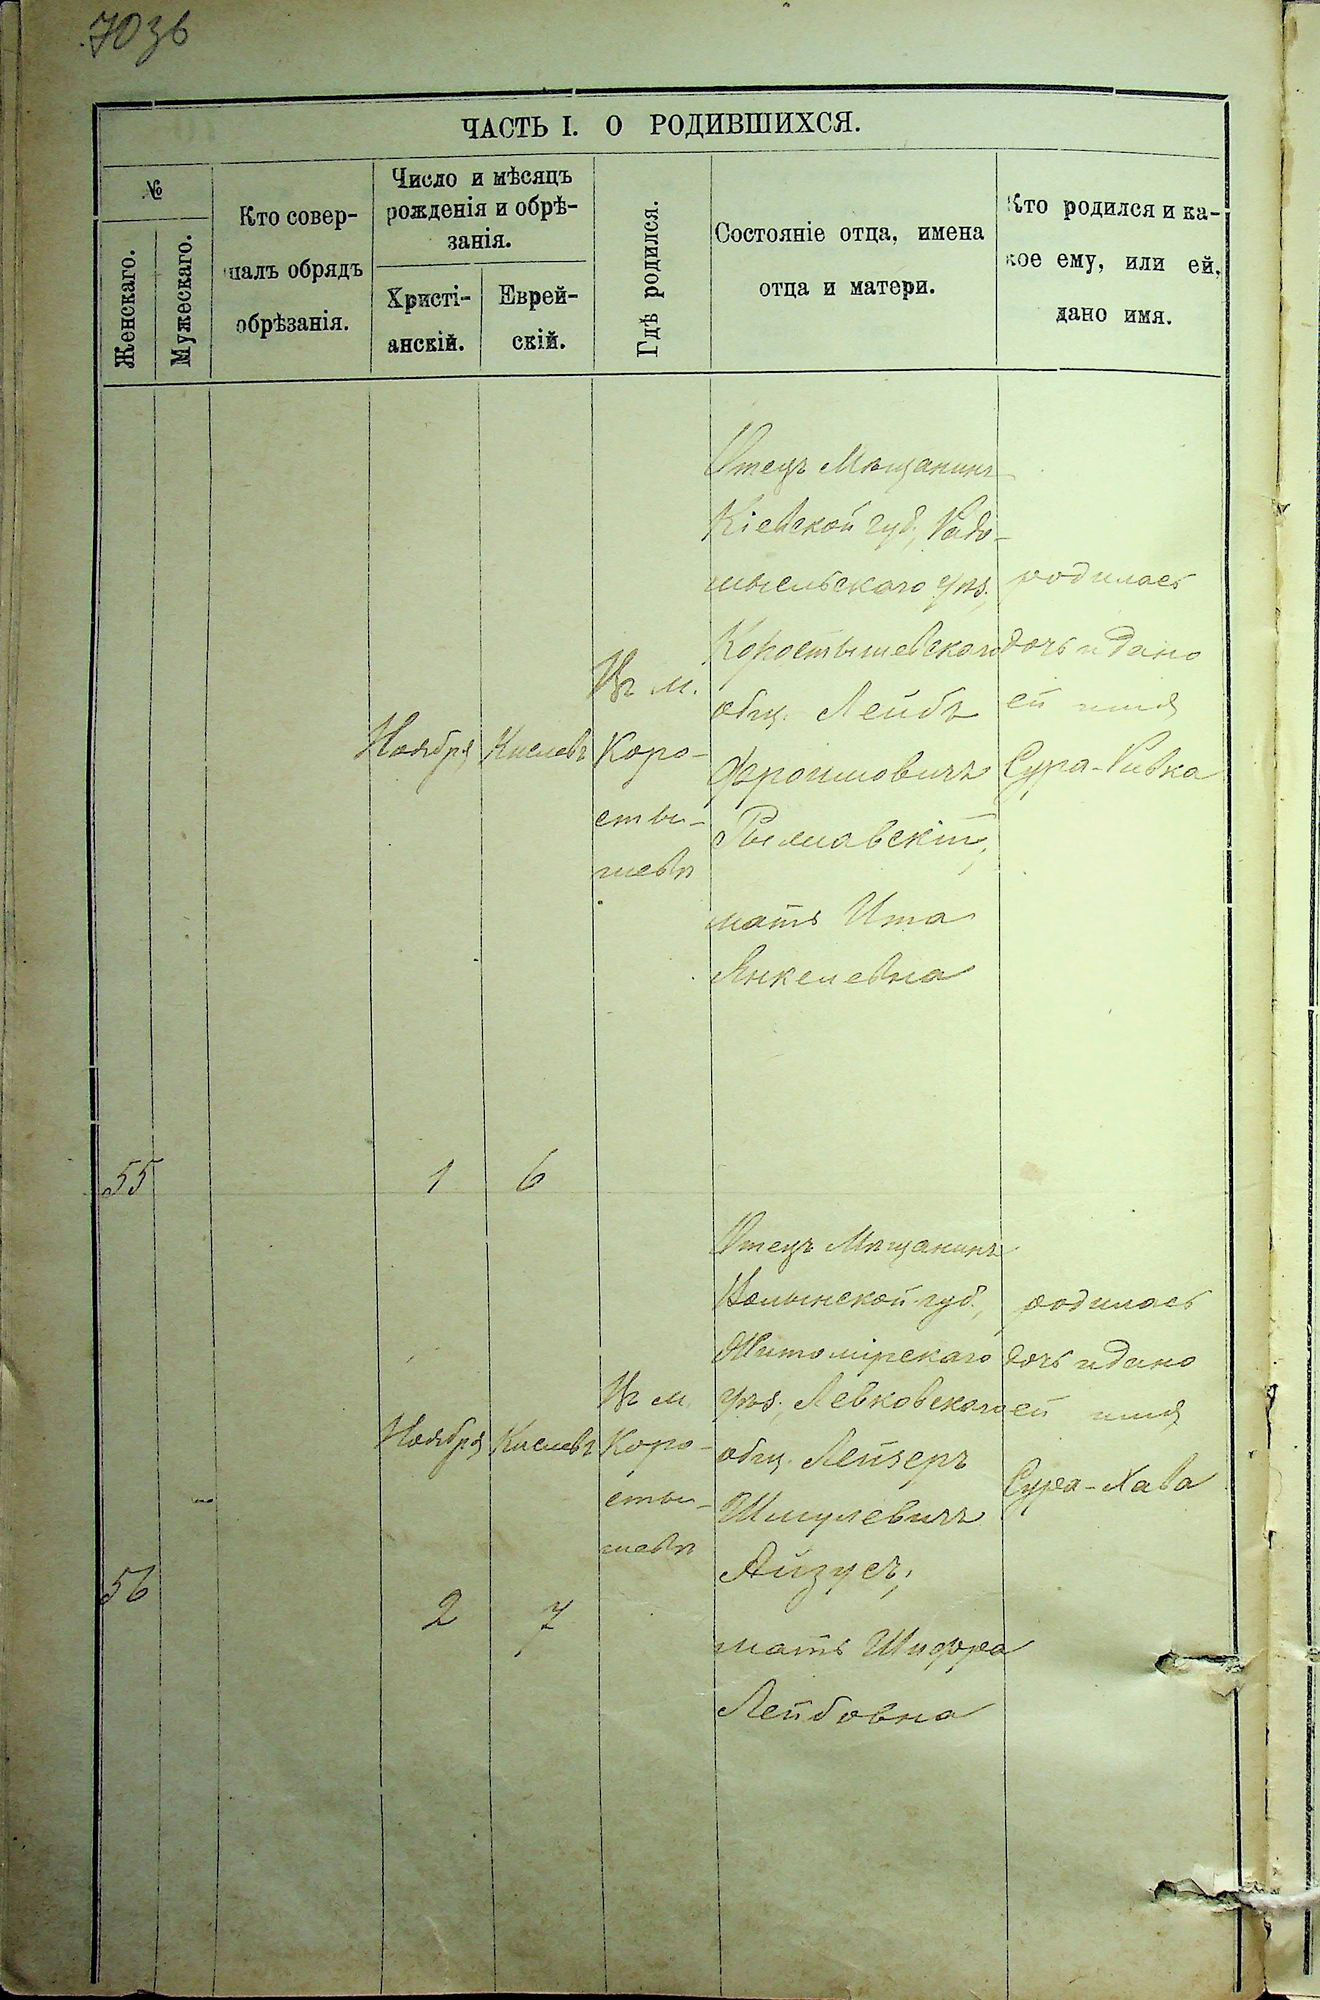 70зв
ЧАСТЬ I. О РОДИВШИХСЯ.
№
Женскаго.
Мужескаго.
Кто совер-
шалъ обрядъ
обрѣзанія.
Число и мѣсяцъ
рожденія и обрѣ-
занія.
Христі-
анскій.
Еврей-
скій.
Гдѣ родился.
Состояніе отца, имена
отца и матери.
Кто родился и ка-
кое ему, или ей,
дано имя.
55
Ноября
1
Кислевъ
6
Въ м.
Коро-
сты-
шевѣ
Отецъ Мѣщанинъ
Кіевской губ., Радо-
мысльскаго уѣз.,
Коростышевскаго
общ. Лейбъ
Фроимовичъ
мать Ита
Янкелевна
родилась
дочь и дано
ей имя
Сура-Ривка
56
Ноября
2
Кислевъ
7
Въ м.
Коро-
сты-
шевѣ
Отецъ Мѣщанинъ
Волынской губ.,
Житомірскаго
уѣз., Левковскаго
общ. Лейзеръ
Шмулевичъ
Айзусъ,
мать Шифра
Лейбовна
родилась
дочь и дано
ей имя
Сура-Хава